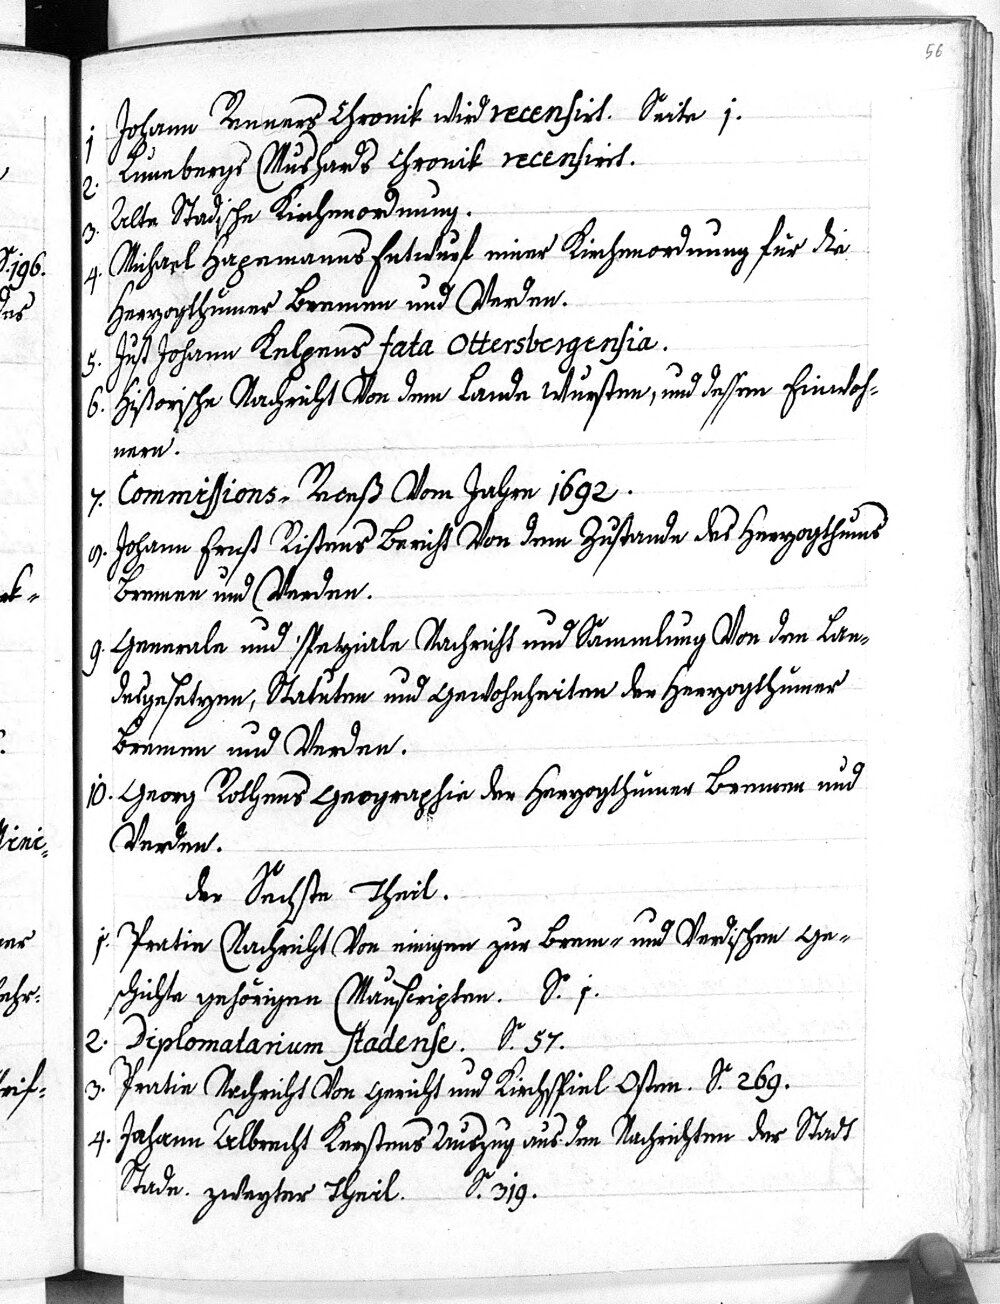 56
1 Johann Renners Chronik wird recensirt. Seite 1.
2. Lunebergs Mushards Chronik recensirt.
3. Alte Stadische Kirchenordnung.
4. Michael Havemanns Entwurf einer Kirchenordnung für die
Herzogthümer Bremen und Verden.
5. Just Johann Kelpens fata Ottersbergensia.
6. Historische Nachricht Von dem Lande Wursten, und dessen Einwoh-
nern.
7. Commissions- Receß Vom Jahre 1692.
8. Johann Ernst Ristens Bericht Von dem Zustande des Herzogthums
Bremen und Verden.
9. Generale und Spetziale Nachricht und Sammlung Von den Lan-
desgesetzen, Statuten und Gewohnheiten der Herzogthümer
Bremen und Verden.
10. Georg Rothens Geographie der Herzogthümer Bremen und
Verden.
der Sechste Theil.
1. Pratje Nachricht Von einigen zur Brem- und Verdischen Ge-
schichte gehörigen Manscripten. S. 1.
2. Diplomatarium Stadense. S. 57.
3. Pratje Nachricht Von Gericht und Kirchspiel Osten. S. 269.
4. Johann Albrecht Kerstens Auszug aus den Nachrichten der Stadt
Stade. zweyter Theil. S. 319.
S. 196.
des